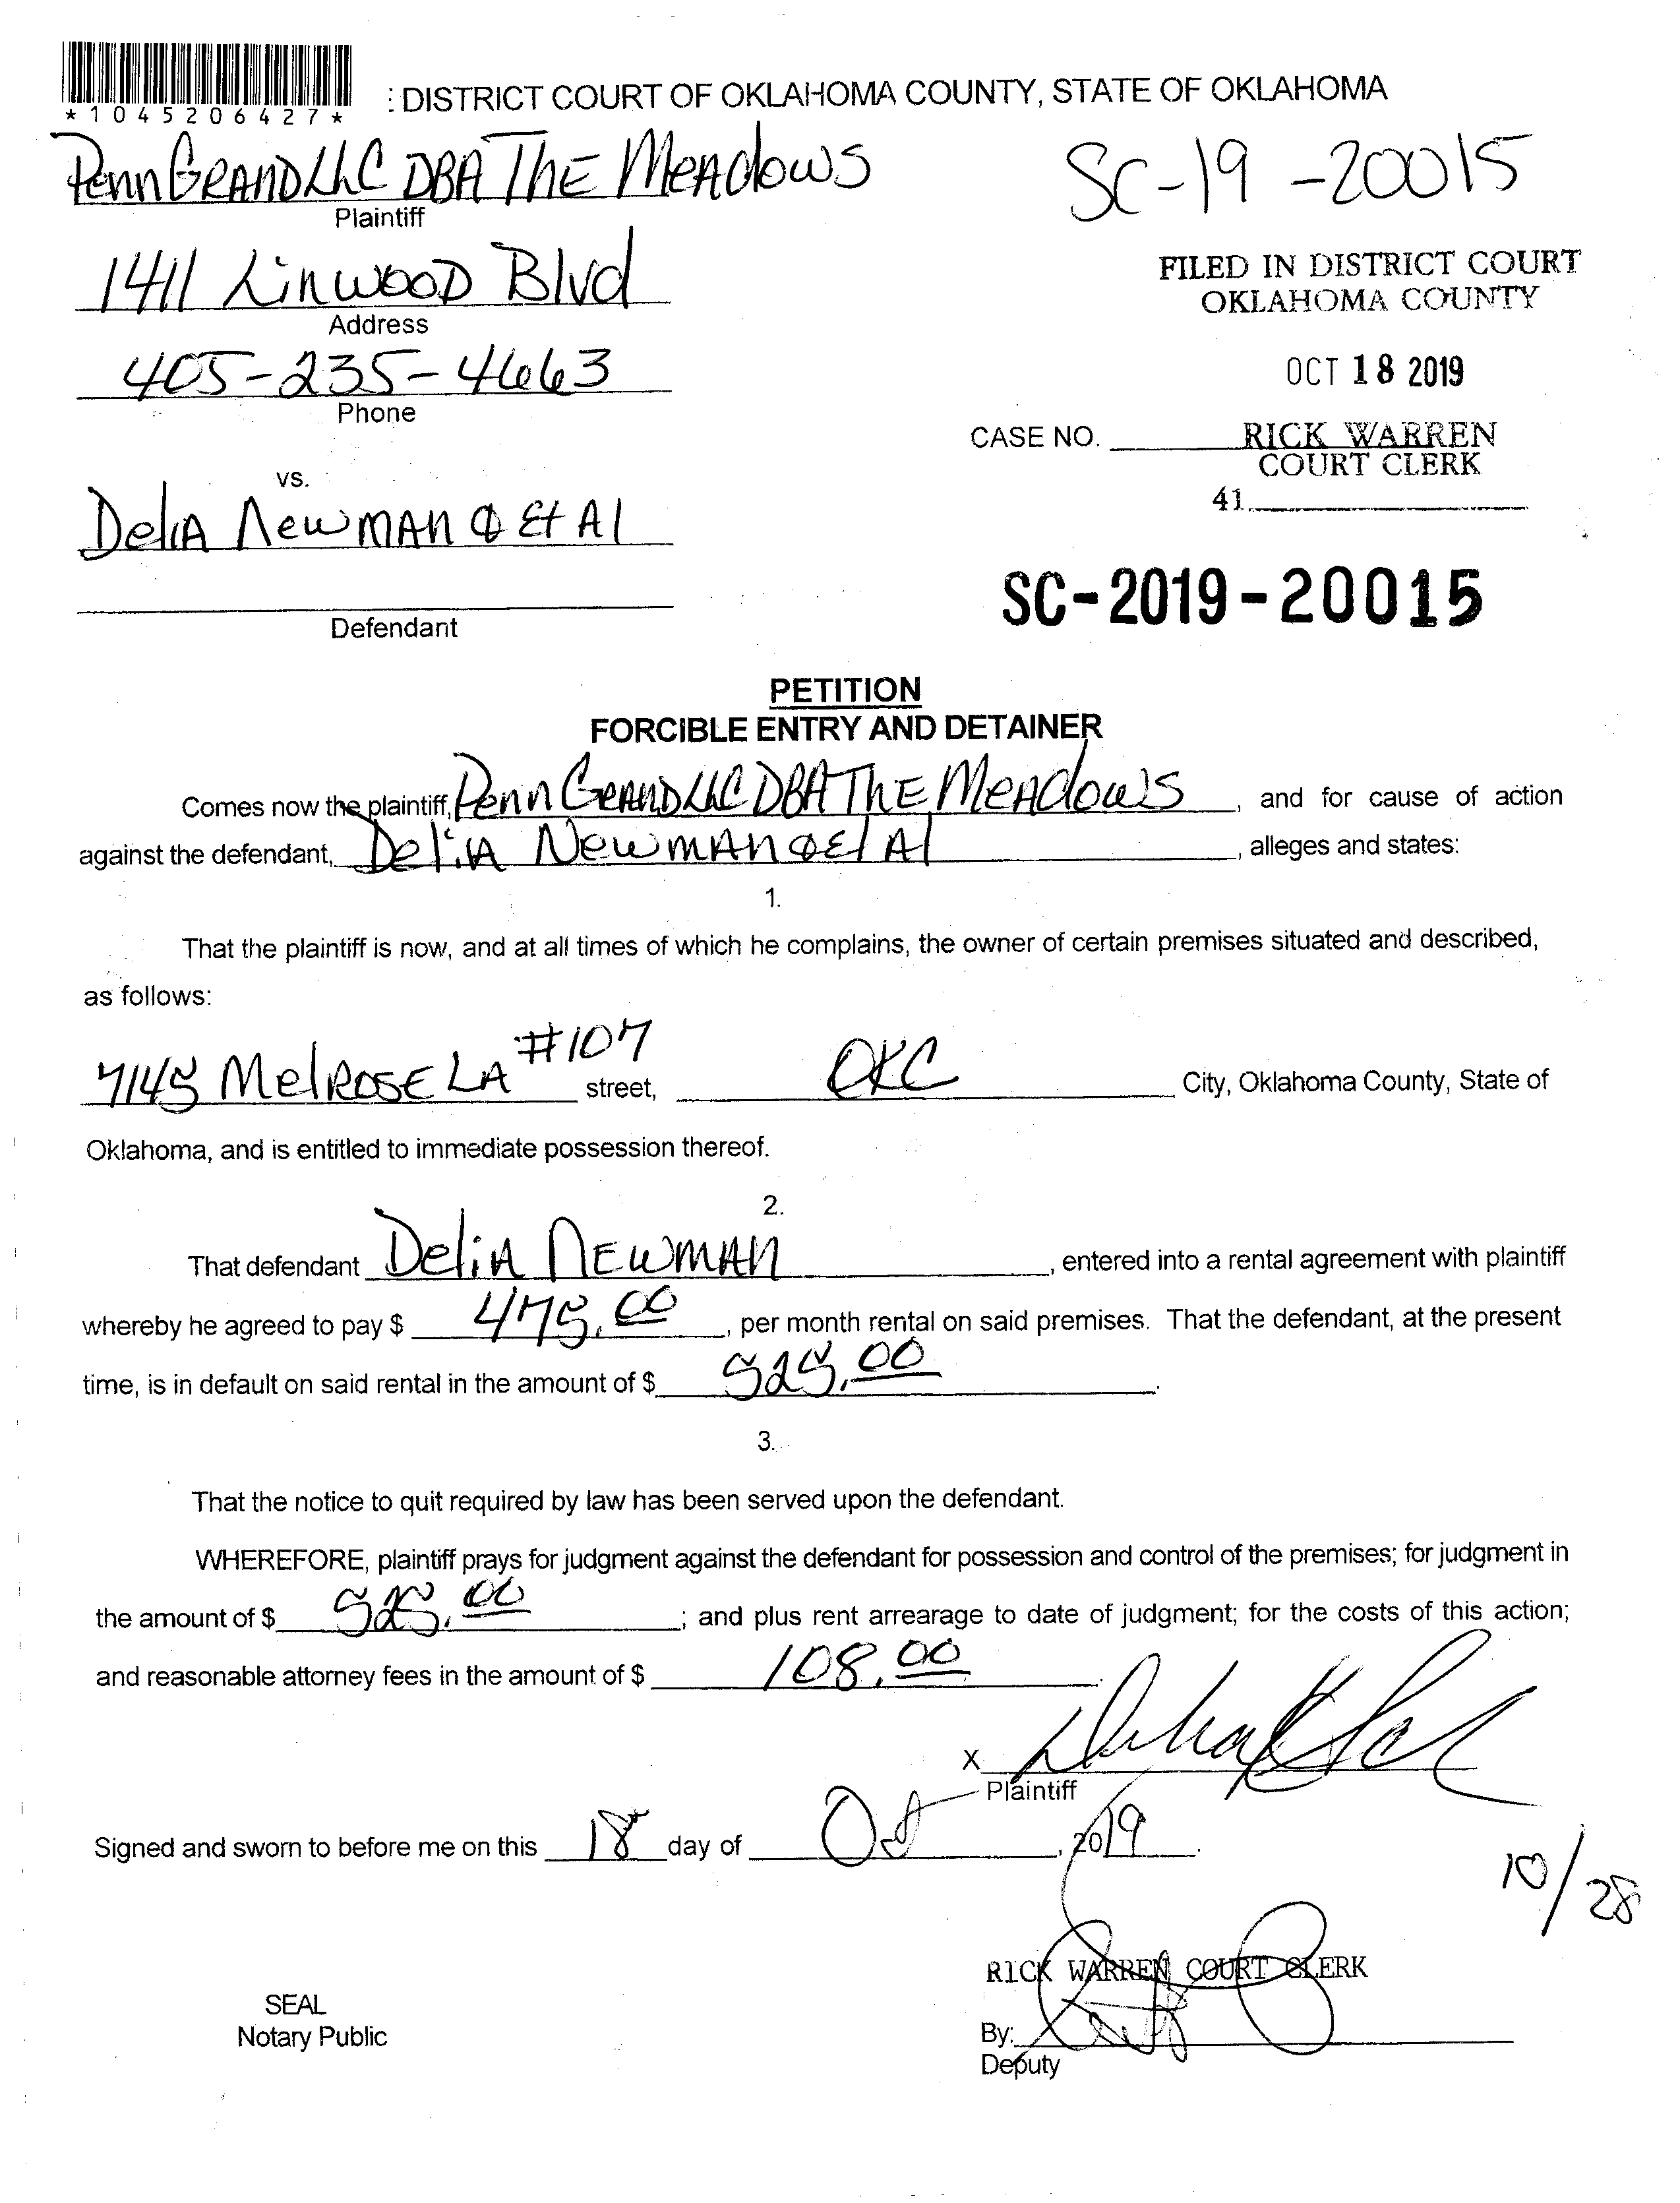 *1045206427*
: DISTRICT COURT OF OKLAHOMA COUNTY, STATE OF OKLAHOMA
Penn Grand LLC DBA The Meadows
SC-19-20015
Plaintiff
1411 Linwood Blvd
Address
FILED IN DISTRICT COURT
OKLAHOMA COUNTY
405-235-4663
Phone
OCT 18 2019
CASE NO.
RICK WARREN
COURT CLERK
41
vs.
Delia Newman & Et Al
Defendant
SC-2019-20015
PETITION
FORCIBLE ENTRY AND DETAINER
Comes now the plaintiff, Penn Grand LLC DBA The Meadows, and for cause of action
against the defendant, Delia Newman & Et Al, alleges and states:
1.
That the plaintiff is now, and at all times of which he complains, the owner of certain premises situated and described,
as follows:
7145 Melrose LA #107 street, OKC City, Oklahoma County, State of
Oklahoma, and is entitled to immediate possession thereof.
2.
That defendant Delia Newman, entered into a rental agreement with plaintiff
whereby he agreed to pay $ 475.00, per month rental on said premises. That the defendant, at the present
time, is in default on said rental in the amount of $ 525.00.
3.
That the notice to quit required by law has been served upon the defendant.
WHEREFORE, plaintiff prays for judgment against the defendant for possession and control of the premises; for judgment in
the amount of $ 525.00; and plus rent arrearage to date of judgment; for the costs of this action;
and reasonable attorney fees in the amount of $ 108.00.
X
Plaintiff
Signed and sworn to before me on this 18 day of Oct, 2019.
10/28
RICK WARREN COURT CLERK
SEAL
Notary Public
By:
Deputy